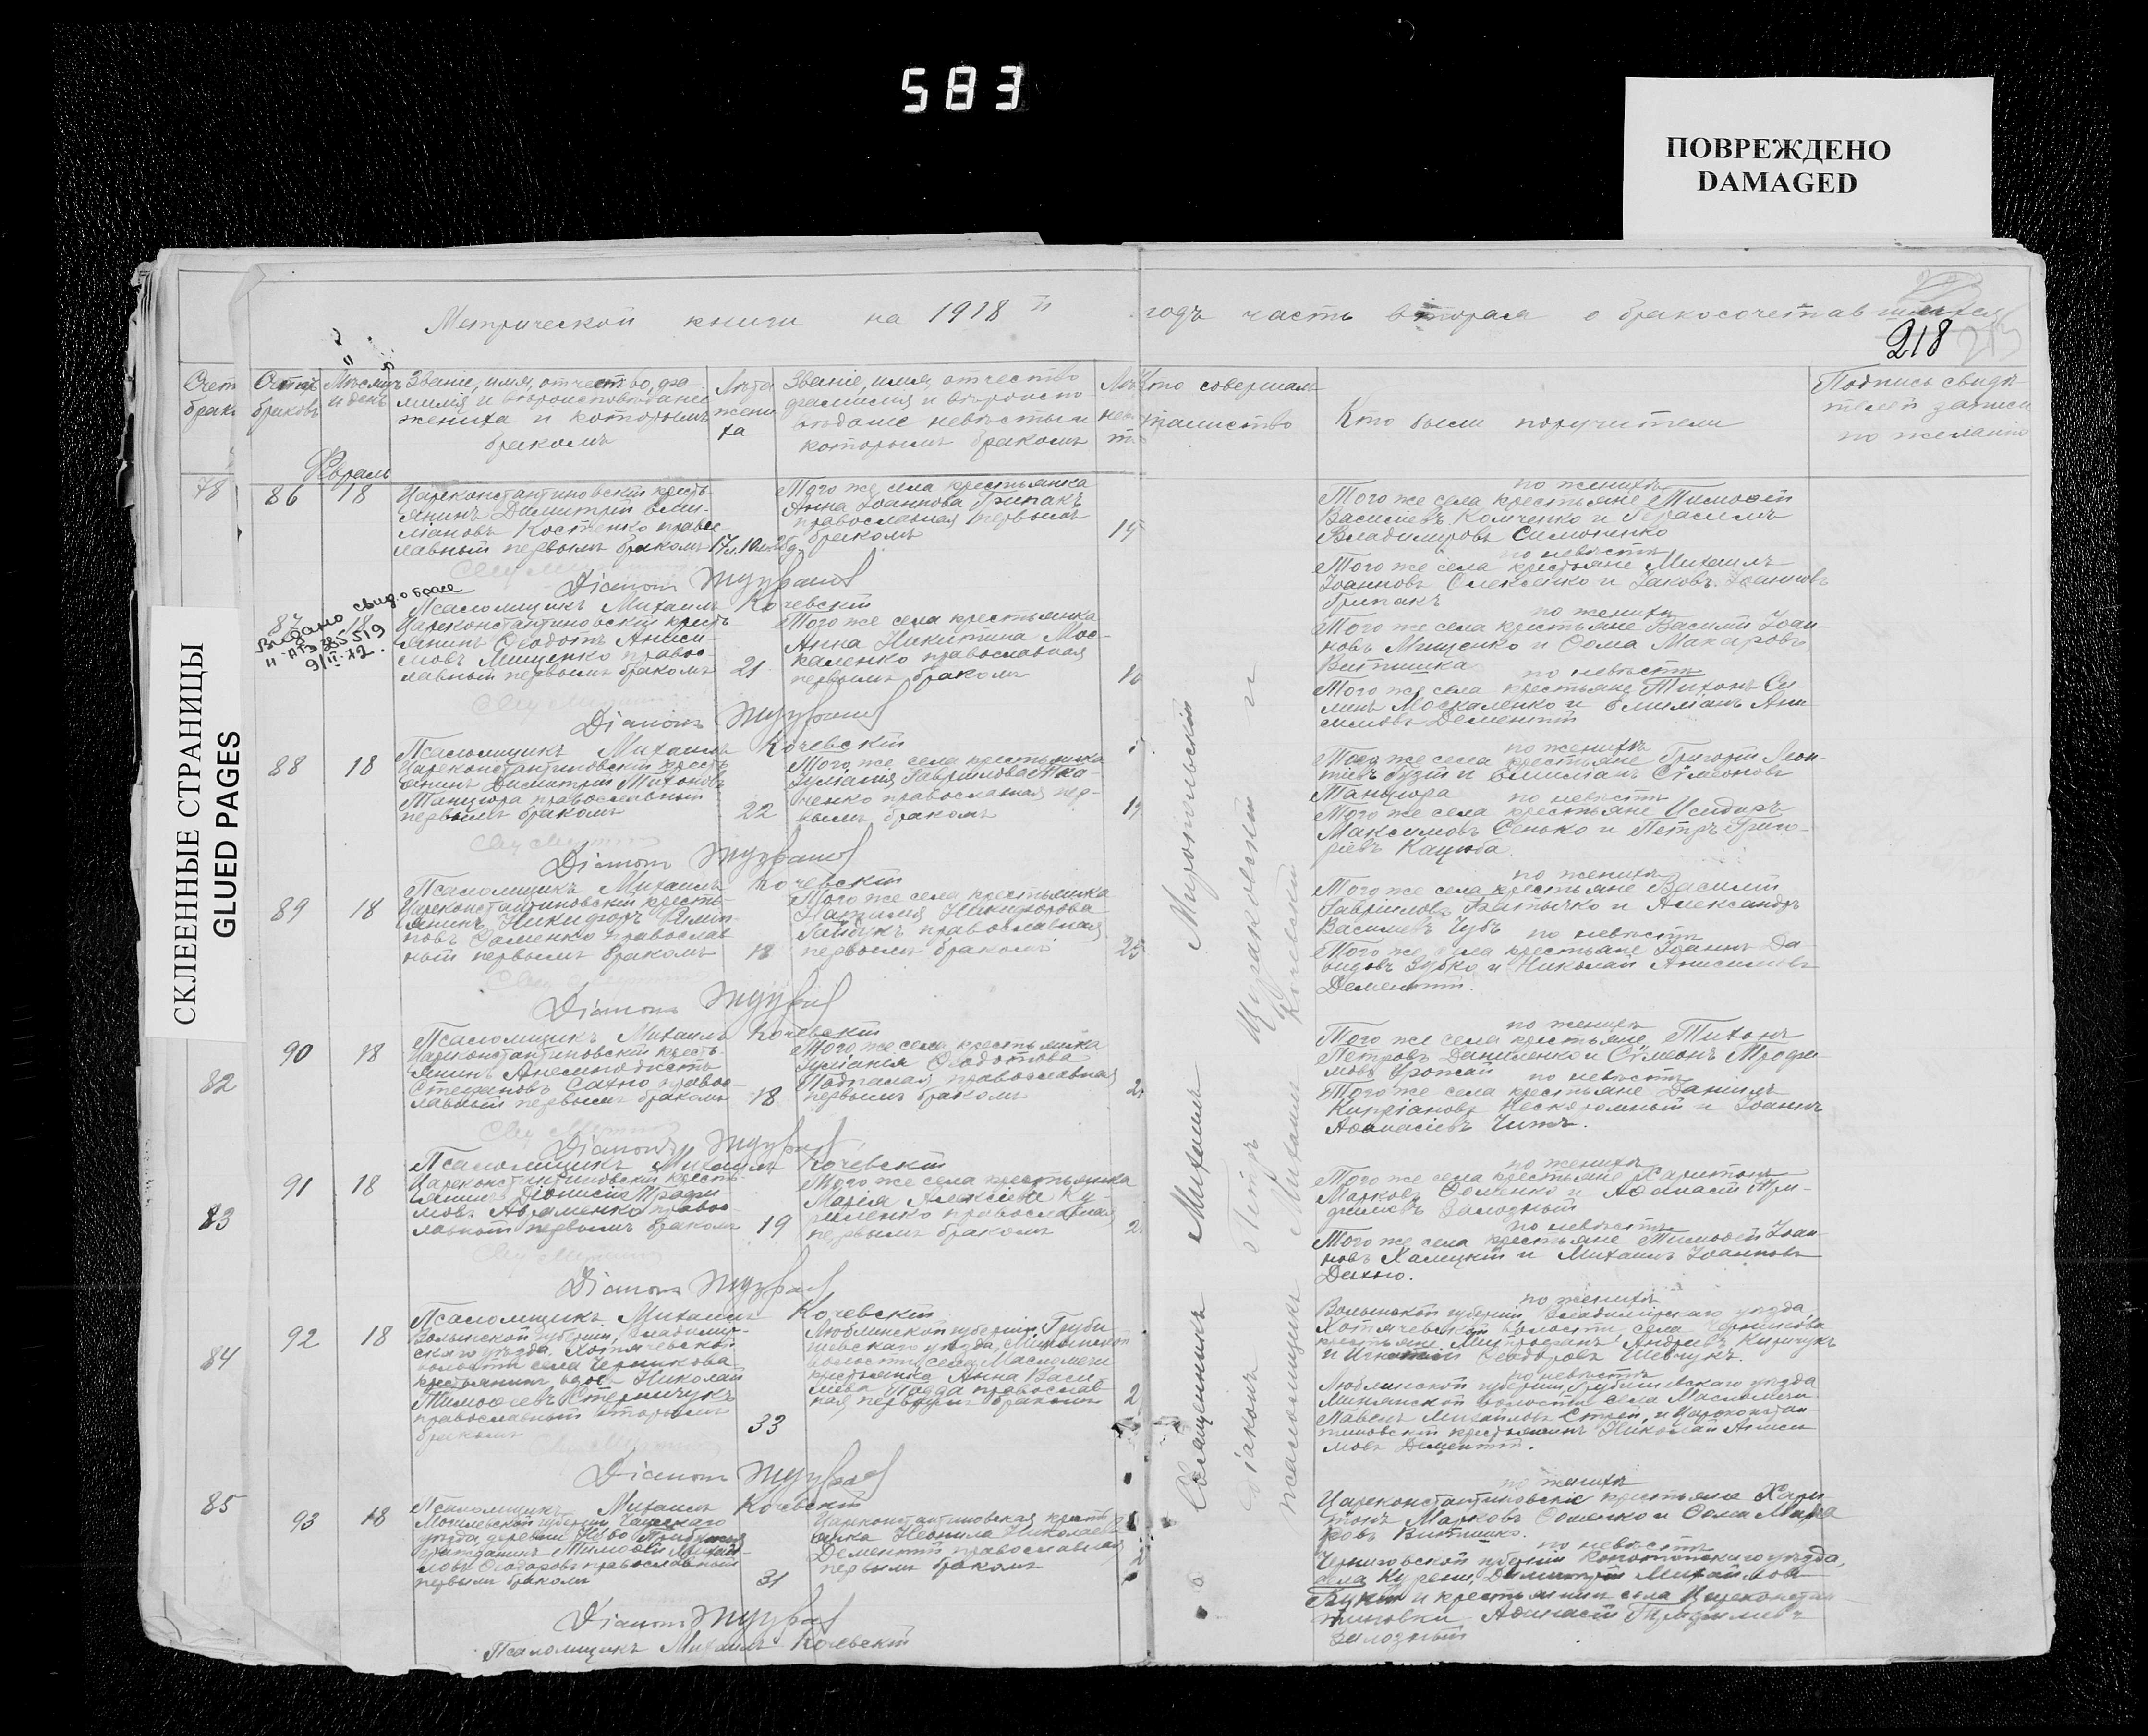 583
ПОВРЕЖДЕНО
DAMAGED
СКЛЕЕННЫЕ СТРАНИЦЫ
GLUED PAGES
Метрической книги на 1918 й годъ часть вторая о бракосочетавшихся
218
Счетъ браковъ
Мѣсяцъ и день
Званіе, имя, отчество, фа
милія и вѣроисповѣданіе
жениха и которымъ
бракомъ
Лѣта
жени
ха
Званіе, имя, отчество
фамилія и вѣроиспо
вѣданіе невѣсты и
которымъ бракомъ
Кто совершалъ
таинство
Кто были поручители
Подпись свидѣ
телей записи
по желанію
Февраль
78
86 18
Цареконстантиновскій кресть
янинъ Димитрій Еми-
ліановъ Костенко правос
лавный первымъ бракомъ
Того же села крестьянка
Анна Іоаннова Грипакъ
православная первымъ
бракомъ
19
по женихѣ
Того же села крестьяне Тимоѳей
Василіевъ Комченко и Герасимъ
Владиміровъ Симоненко
по невѣстѣ
Того же села крестьяне Михаилъ
Іоанновъ Олексенко и Іаковъ Іоанновъ
Грипакъ
Діаконъ
Псаломщикъ Михаилъ Кочевскій
87 18
Выдано свид. о браке
Цареконстантиновскій кресть
янинъ Ѳеодотъ Аниси-
мовъ Мищенко правос-
лавный первымъ бракомъ
21
Того же села крестьянка
Анна Никитина Мос-
каленко православная
первымъ бракомъ
по женихѣ
Того же села крестьяне Василій Іоан
новъ Мищенко и Ѳома Макаровъ
по невѣстѣ
Того же села крестьяне Тихонъ Си
линъ Москаленко и Емиліанъ Ани
симовъ Дементій
Діаконъ
Псаломщикъ Михаилъ Кочевскій
88 18
Цареконстантиновскій кресть
янинъ Димитрій Тихоновъ
Танцюра православный
первымъ бракомъ
22
Того же села крестьянка
Іуліанія Гавриилова
ченко православная пер-
вымъ бракомъ
19
по женихѣ
Того же села крестьяне Григорій Леон-
тіевъ Гузій и Емиліанъ Сѵмеоновъ
Танцюра
по невѣстѣ
Того же села крестьяне Исидоръ
Максимовъ Сенько и Петръ Григо-
ріевъ Кацюба
Діаконъ
Псаломщикъ Михаилъ Кочевскій
89 18
Цареконстантиновскій кресть-
янинъ Никифоръ Филип-
повъ Ѳоменко православ
ный первымъ бракомъ
18
Того же села крестьянка
Наталія Никифорова
православная
первымъ бракомъ
25
по женихѣ
Того же села крестьяне Василій
Гавриловъ Батычко и Александръ
Василіевъ Чубъ
по невѣстѣ
Того же села крестьяне Іоаннъ Да
видовъ Зубко и Николай Анисимовъ
Дементій.
Діаконъ
Псаломщикъ Михаилъ Кочевскій
90 18
82
Цареконстантиновскій кресть-
янинъ Анемподистъ
Стефановъ Сахно правос-
лавный первымъ бракомъ
18
Того же села крестьянка
Іуліанія Ѳеодотова
православная
первымъ бракомъ
по женихѣ
Того же села крестьяне Тихонъ
Петровъ Даниленко и Сѵмеонъ Трофи
мовъ
по невѣстѣ
Того же села крестьяне Даніилъ
Кипріановъ Нескоромный и Іоаннъ
Аѳанасіевъ
Діаконъ
Псаломщикъ Михаилъ Кочевскій
91 18
83
Цареконстантиновскій кресть-
янинъ Діонисій Трофи
мовъ Авраменко правос-
лавный первымъ бракомъ
19
Того же села крестьянка
Марія Алексіева Ку-
риленко православная
первымъ бракомъ
по женихѣ
Того же села крестьяне Харитонъ
Марковъ Ѳоменко и Аѳанасій Три-
филіевъ
по невѣстѣ
Того же села крестьяне Тимоѳей Іоан-
новъ Халецкій и Михаилъ Іоанновъ
Дахно.
Діаконъ
Псаломщикъ Михаилъ Кочевскій
92 18
84
Волынской губерніи, Владимір-
скаго уѣзда, Хотячевской
волости села Черникова
крестьянинъ вдовъ Николай
Тимоѳеевъ Стельмчукъ
православный вторымъ
бракомъ
33
Люблинской губерніи Груби
шевскаго уѣзда, Минянской
волости села Масломечи
крестьянка Анна Васи
ліева православ
ная первымъ бракомъ
по женихѣ
Волынской губерніи Владимірскаго уѣзда,
Хотячевской волости села Черникова
крестьяне Митрофанъ Андреевъ Киричукъ
и Игнатій Ѳеодоровъ Шевчукъ.
по невѣстѣ
Люблинской губерніи, Грубишевскаго уѣзда
Минянской волости села Масломечи
Павелъ Михайловъ и Цареконстан-
тиновскій крестьянинъ Николай Аниси
мовъ Дементій.
Діаконъ
Псаломщикъ Михаилъ Кочевскій
93 18
85
Могилевской губерніи Чаусскаго
уѣзда, деревни Ново
гражданинъ Тимоѳей Михай-
ловъ Ѳеодоровъ православный
первымъ бракомъ
31
Цареконстантиновская кресть
янка Неонила Николаева
Дементій православная
первымъ бракомъ
по женихѣ
Цареконстантиновскіе крестьяне Хари
тонъ Марковъ Ѳоменко и Ѳома Мака
ровъ
по невѣстѣ
Черниговской губерніи Конотопскаго уѣзда,
села Курени, Димитрій Михайловъ
и крестьянинъ села Цареконстан
тиновки Аѳанасій Трифиліевъ
Діаконъ
Псаломщикъ Михаилъ Кочевскій
Священникъ Михаилъ Миропольскій
Діаконъ Петръ и
псаломщикъ Михаилъ Кочевскій